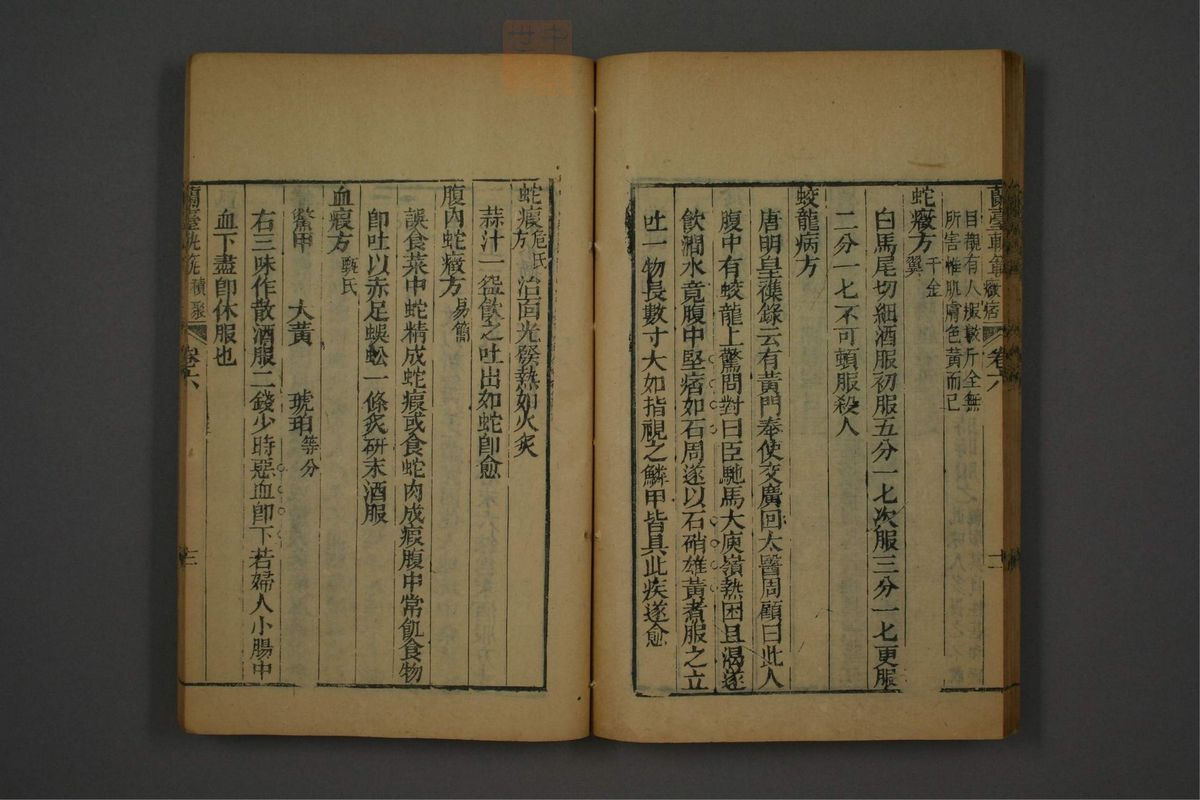 蘭臺軌範癥痞 卷六
目覩有人服數斤全無
所害惟肌膚色黃而已
蛇癥方千金翼
白馬尾切細酒服初服五分一七次服三分一七更服
二分一七不可頓服殺人
蛟龍病方
唐明皇襍錄云有黃門奉使交廣回太醫周顧曰此人
腹中有蛟龍上驚問對曰臣馳馬大庾嶺熱困且渴遂
飲澗水竟腹中堅痞如石周遂以石硝雄黃煮服之立
吐一物長數寸大如指視之鱗甲皆具此疾遂愈
蛇瘕方危氏 治面光發熱如火炙
蒜汁一盌飲之吐出如蛇卽愈
腹內蛇癥方易簡
誤食菜中蛇精成蛇瘕或食蛇肉成瘕腹中常飢食物
卽吐以赤足蜈蚣一條炙研末酒服
血瘕方甄氏
鱉甲 大黃 琥珀等分
右三味作散酒服二錢少時惡血卽下若婦人小腸中
血下盡卽休服也
蘭臺軌範積聚 卷六